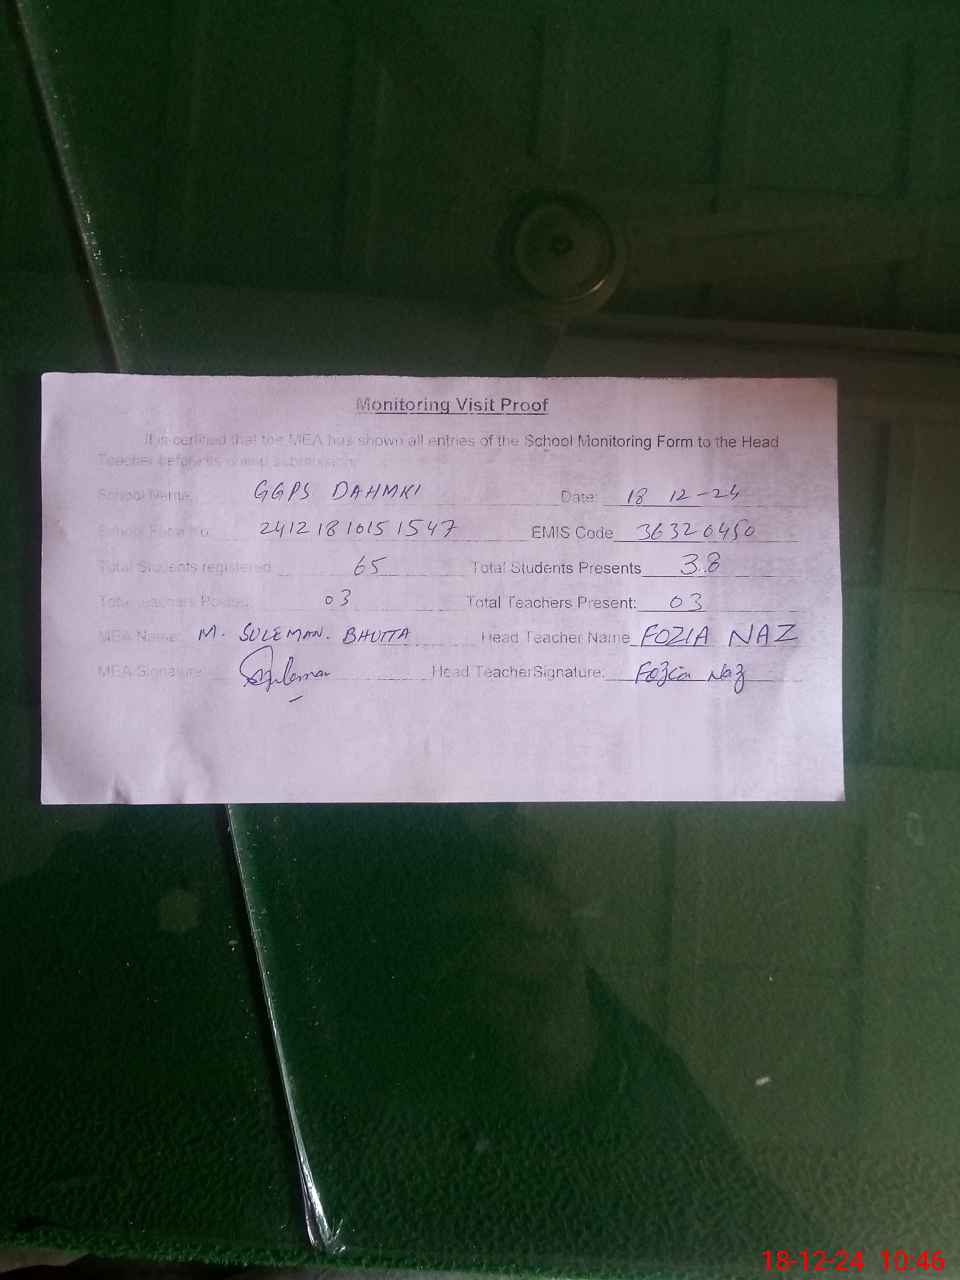 Monitoring Visit Proof
It is certified that the MEA has shown all entries of the School Monitoring Form to the Head
Teacher before its submission
School Name: GGPS DAHMKI Date: 18 12-24
School Form No: 24121810151547 EMIS Code 36320450
Total Students registered 65 Total Students Presents 38
Total Teachers Posted: 03 Total Teachers Present: 03
MEA Name: M. SULEMAN. BHUTTA Head Teacher Name FOZIA NAZ
MEA Signature: Suleman Head TeacherSignature: Fozia Naz
18-12-24 10:46